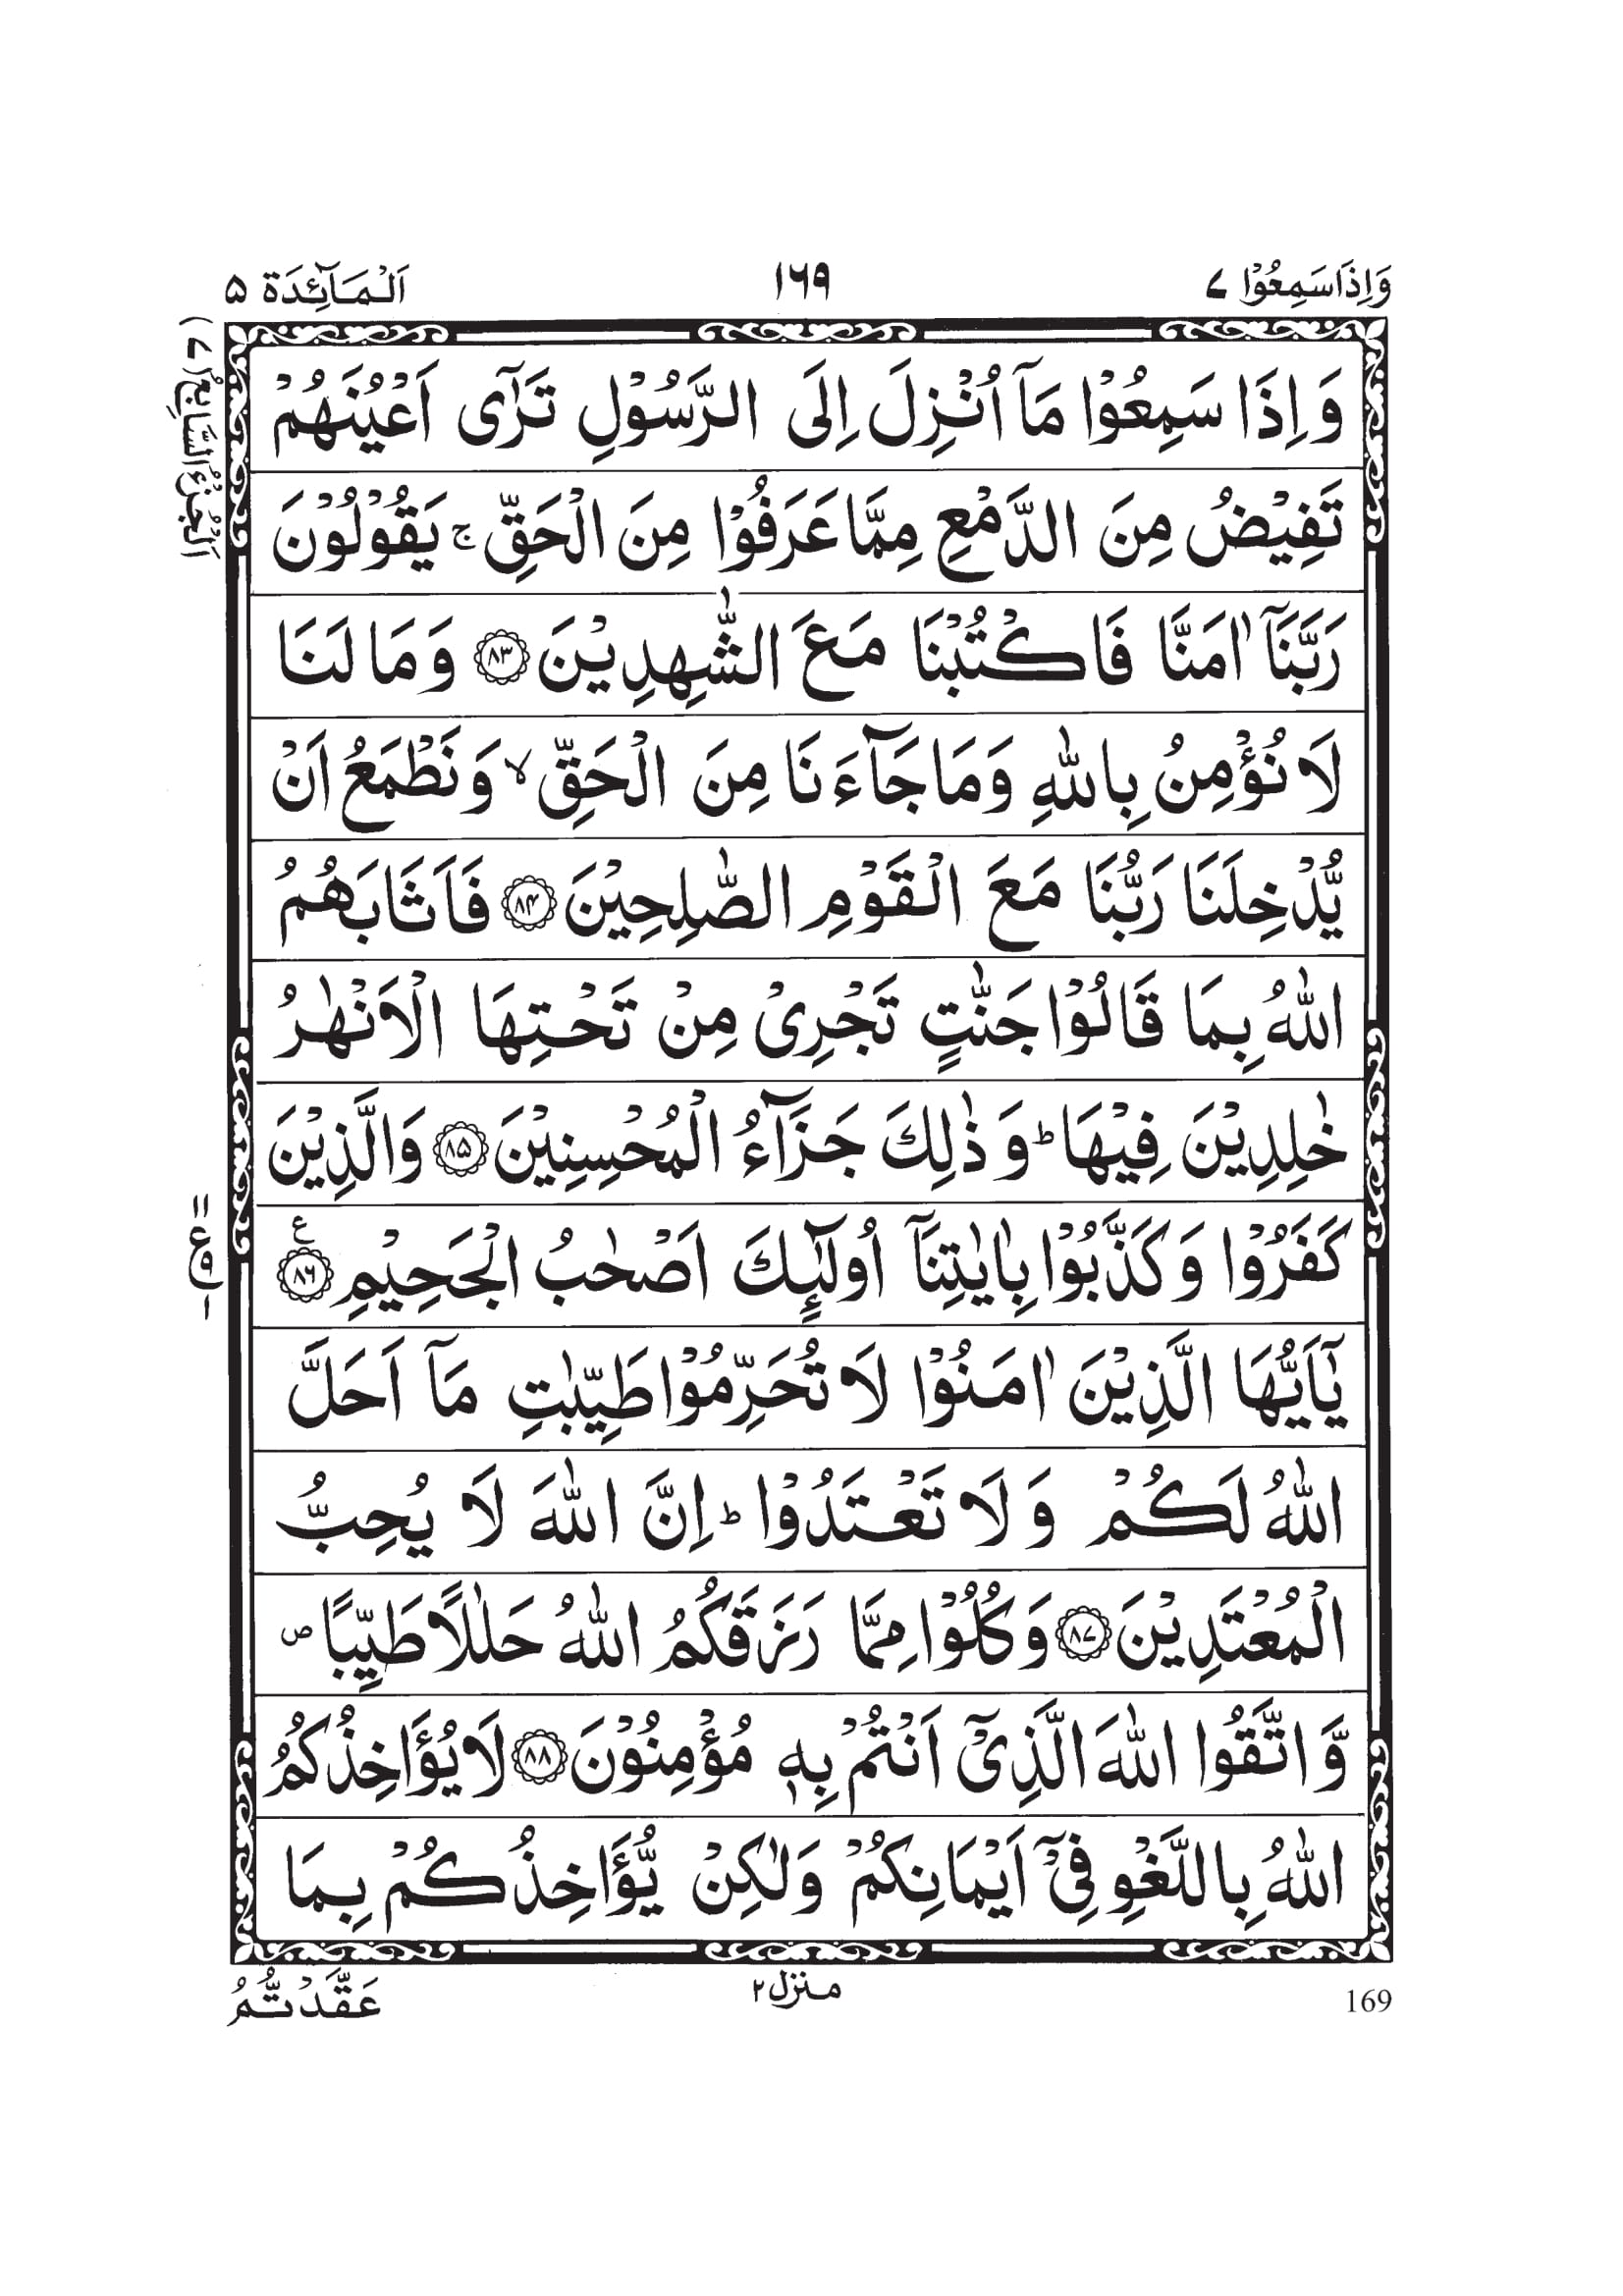 وَاِذَا سَمِعُوۡا ۷ ۱۶۹ اَلۡمَآئِدَة ۵
اَلۡجُزۡءُ السَّابِعُ (۷)
وَ اِذَا سَمِعُوۡا مَاۤ اُنۡزِلَ اِلَى الرَّسُوۡلِ تَرٰٓى اَعۡيُنَهُمۡ
تَفِيۡضُ مِنَ الدَّمۡعِ مِمَّا عَرَفُوۡا مِنَ الۡحَقِّ ۚ يَقُوۡلُوۡنَ
رَبَّنَاۤ اٰمَنَّا فَاكۡتُبۡنَا مَعَ الشّٰهِدِيۡنَ ﴿۸۳﴾ وَمَا لَنَا
لَا نُؤۡمِنُ بِاللّٰهِ وَمَا جَآءَنَا مِنَ الۡحَقِّ ۙ وَنَطۡمَعُ اَنۡ
يُّدۡخِلَنَا رَبُّنَا مَعَ الۡقَوۡمِ الصّٰلِحِيۡنَ ﴿۸۴﴾ فَاَثَابَهُمُ
اللّٰهُ بِمَا قَالُوۡا جَنّٰتٍ تَجۡرِىۡ مِنۡ تَحۡتِهَا الۡاَنۡهٰرُ
خٰلِدِيۡنَ فِيۡهَا ؕ وَ ذٰلِكَ جَزَآءُ الۡمُحۡسِنِيۡنَ ﴿۸۵﴾ وَالَّذِيۡنَ
كَفَرُوۡا وَكَذَّبُوۡا بِاٰيٰتِنَاۤ اُولٰٓئِكَ اَصۡحٰبُ الۡجَحِيۡمِ ﴿۸۶﴾ ع
يٰۤاَيُّهَا الَّذِيۡنَ اٰمَنُوۡا لَا تُحَرِّمُوۡا طَيِّبٰتِ مَاۤ اَحَلَّ
اللّٰهُ لَـكُمۡ وَلَا تَعۡتَدُوۡا ؕ اِنَّ اللّٰهَ لَا يُحِبُّ
الۡمُعۡتَدِيۡنَ ﴿۸۷﴾ وَكُلُوۡا مِمَّا رَزَقَكُمُ اللّٰهُ حَلٰلًا طَيِّبًا ص
وَّاتَّقُوا اللّٰهَ الَّذِىۡۤ اَنۡتُمۡ بِهٖ مُؤۡمِنُوۡنَ ﴿۸۸﴾ لَا يُؤَاخِذُكُمُ
اللّٰهُ بِاللَّغۡوِ فِىۡۤ اَيۡمَانِكُمۡ وَلٰكِنۡ يُّؤَاخِذُكُمۡ بِمَا
169 منزل ۲ عَقَّدْتُّمُ